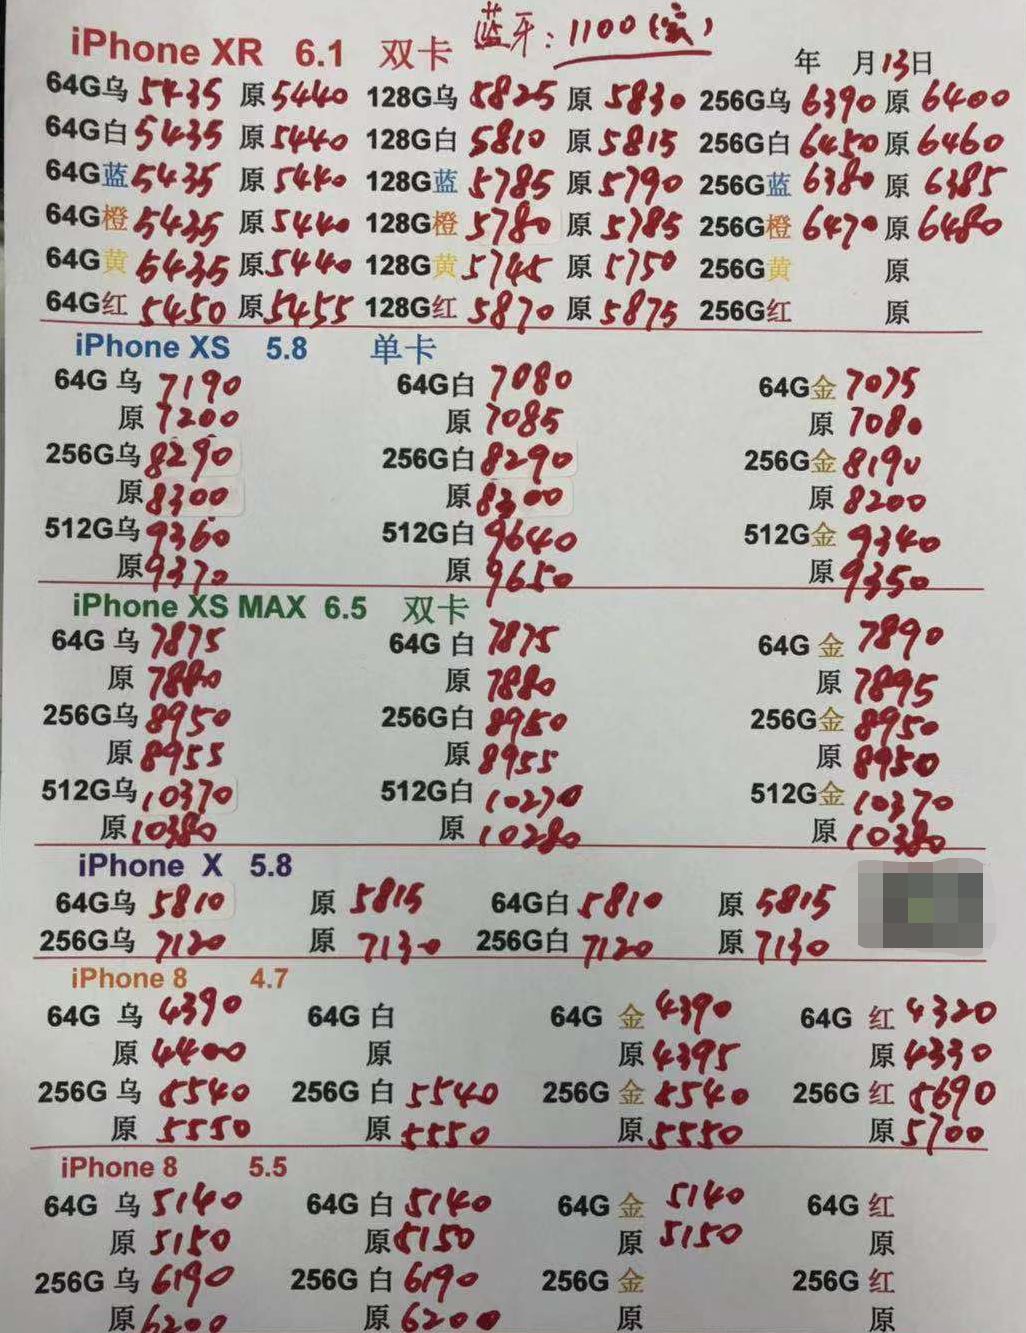 蓝牙:1100(滨)
iPhone XR 6.1 双卡 年 月13日
64G乌 5435 原5440 128G乌 5825 原 5830 256G乌 6390 原 6400
64G白 5435 原 5440 128G白 5810 原 5815 256G白 6450 原 6460
64G蓝 5435 原 5440 128G蓝 5785 原 5790 256G蓝 6380 原 6385
64G橙 5435 原 5440 128G橙 5780 原 5785 256G橙 6470 原 6480
64G黄 5435 原5440 128G黄 5745 原 5750 256G黄 原
64G红 5450 原5455 128G红 5870 原 5875 256G红 原
iPhone XS 5.8 单卡
64G 乌 7190 64G白 7080 64G金 7075
原 7200 原 7085 原 7080
256G乌 8290 256G白 8290 256G金 8190
原 8300 原 8300 原 8200
512G乌 9360 512G白 9640 512G金 9340
原 9370 原 9650 原 9350
iPhone XS MAX 6.5 双卡
64G 乌 7875 64G 白 7875 64G 金 7890
原 7880 原 7880 原 7895
256G乌 8950 256G白 8950 256G金 8950
原 8955 原 8955 原 8950
512G乌 10370 512G白 10270 512G金 10370
原 10380 原 10280 原 10380
iPhone X 5.8
64G乌 5810 原 5815 64G白 5810 原 5815
256G乌 7120 原 7130 256G白 7120 原 7130
iPhone 8 4.7
64G 乌 4390 64G 白 64G 金 4390 64G 红 4320
原 4400 原 原 4395 原 4330
256G 乌 5540 256G 白 5540 256G 金 5540 256G 红 5690
原 5550 原 5550 原 5550 原 5700
iPhone 8 5.5
64G 乌 5140 64G 白 5140 64G 金 5140 64G 红
原 5150 原 5150 原 5150 原
256G 乌 6190 256G 白 6190 256G 金 256G 红
原 6200 原 6200 原 原